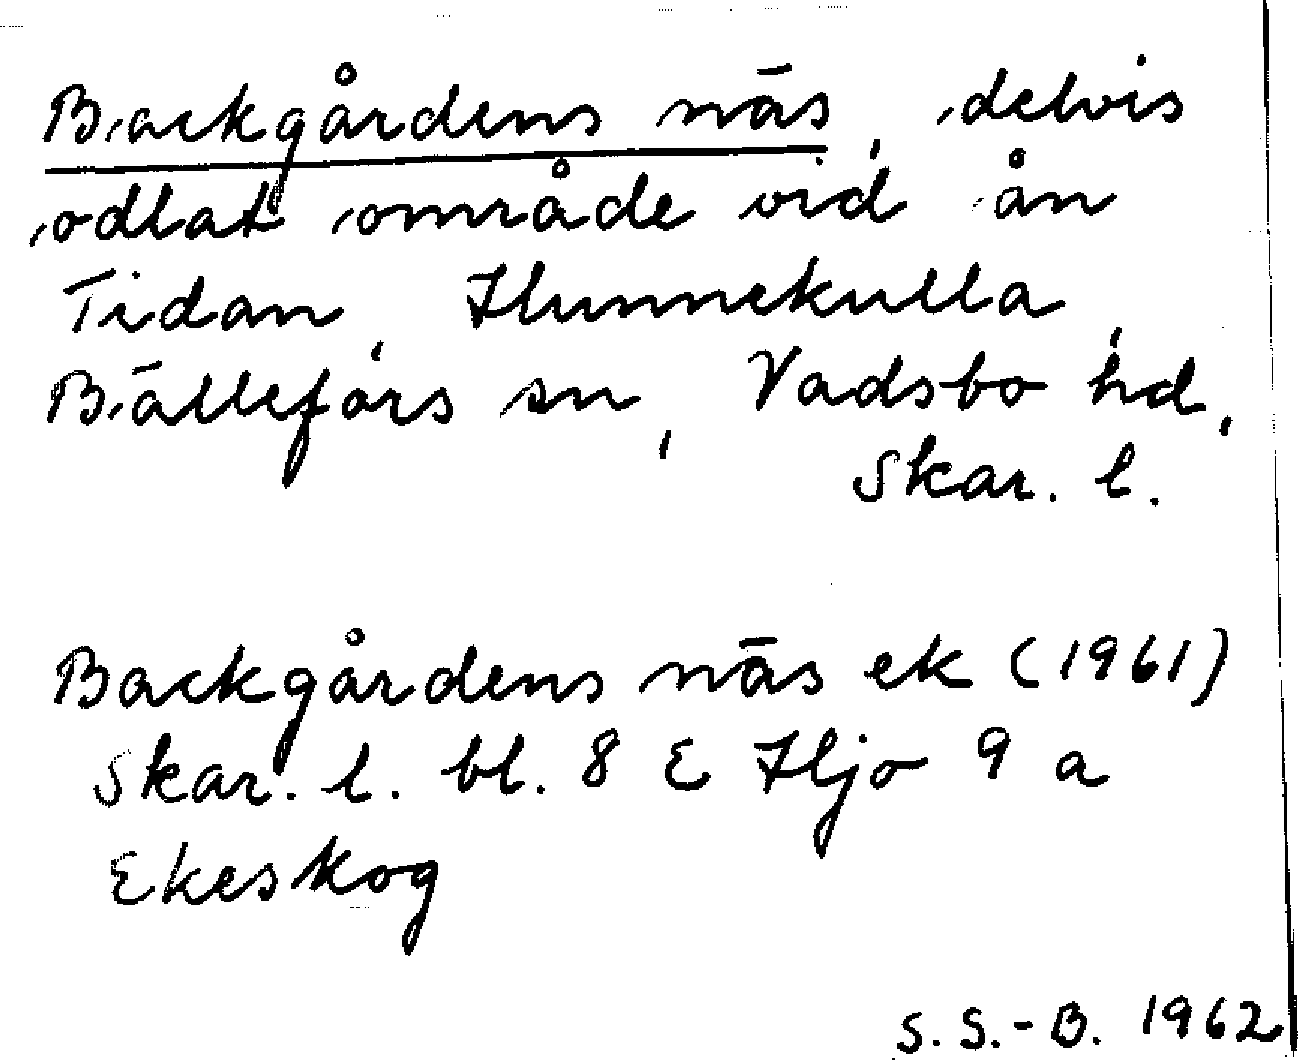 Backgårdens näs, delvis
odlat område vid ån
Tidan, Hunnekulla,
Bällefors sn, Vadsbo hd,
Skar. l.
Backgårdens näs ek (1961)
Skar. l. bl. 8 E Hjo 9 a
Ekeskog
S. S.-B. 1962